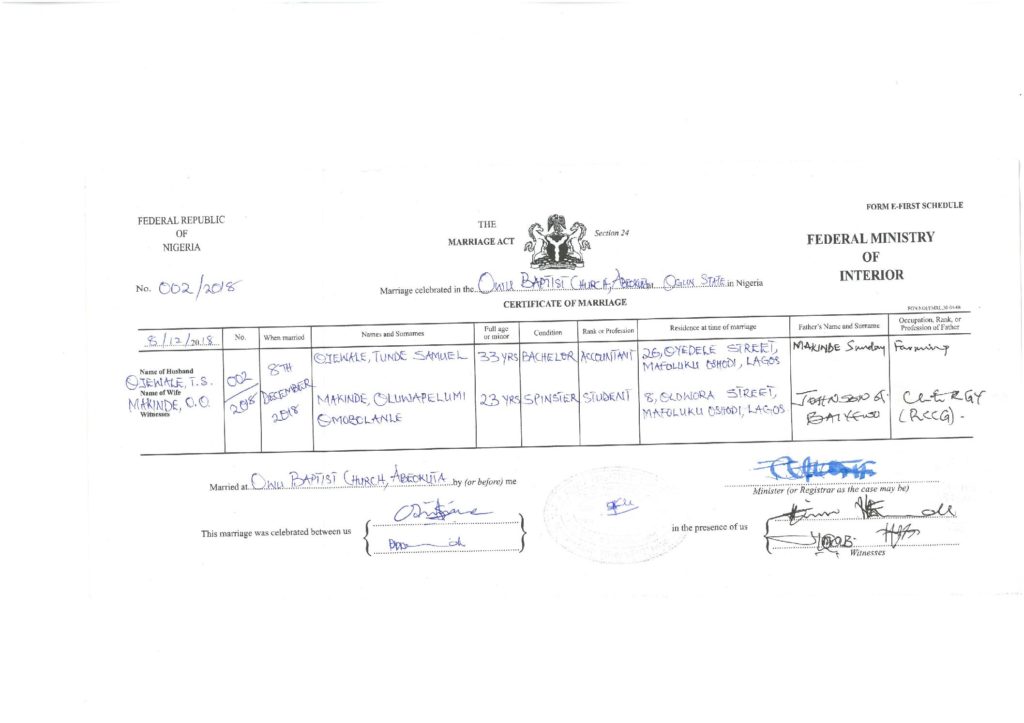 FORM E-FIRST SCHEDULE
FEDERAL REPUBLIC
OF
NIGERIA
THE
MARRIAGE ACT
Section 24
FEDERAL MINISTRY
OF
INTERIOR
No. 002/2018
Marriage celebrated in the OWU BAPTIST CHURCH, ABEOKUTA OGUN STATE in Nigeria
CERTIFICATE OF MARRIAGE
8/12/2018
No.
When married
Names and Surnames
Full age
or minor
Condition
Rank or Profession
Residence at time of marriage
Father's Name and Surname
Occupation, Rank, or
Profession of Father
Name of Husband
OJEWALE, T.S.
Name of Wife
MAKINDE, O.O.
Witnesses
002/
2018
8TH
DECEMBER
2018
OJEWALE, TUNDE SAMUEL
33 YRS
BACHELOR
ACCOUNTANT
26, OYEDELE STREET,
MAFOLUKU OSHODI, LAGOS
MAKINDE Sunday
Farming
MAKINDE, OLUWAPELUMI
OMOBOLANLE
23 YRS
SPINSTER
STUDENT
8, OLOWORA STREET,
MAFOLUKU OSHODI, LAGOS
JOHNSON
CLERGY
(RCCG).
Married at OWU BAPTIST CHURCH, ABEOKUTA by (or before) me
Minister (or Registrar as the case may be)
This marriage was celebrated between us
in the presence of us
Witnesses